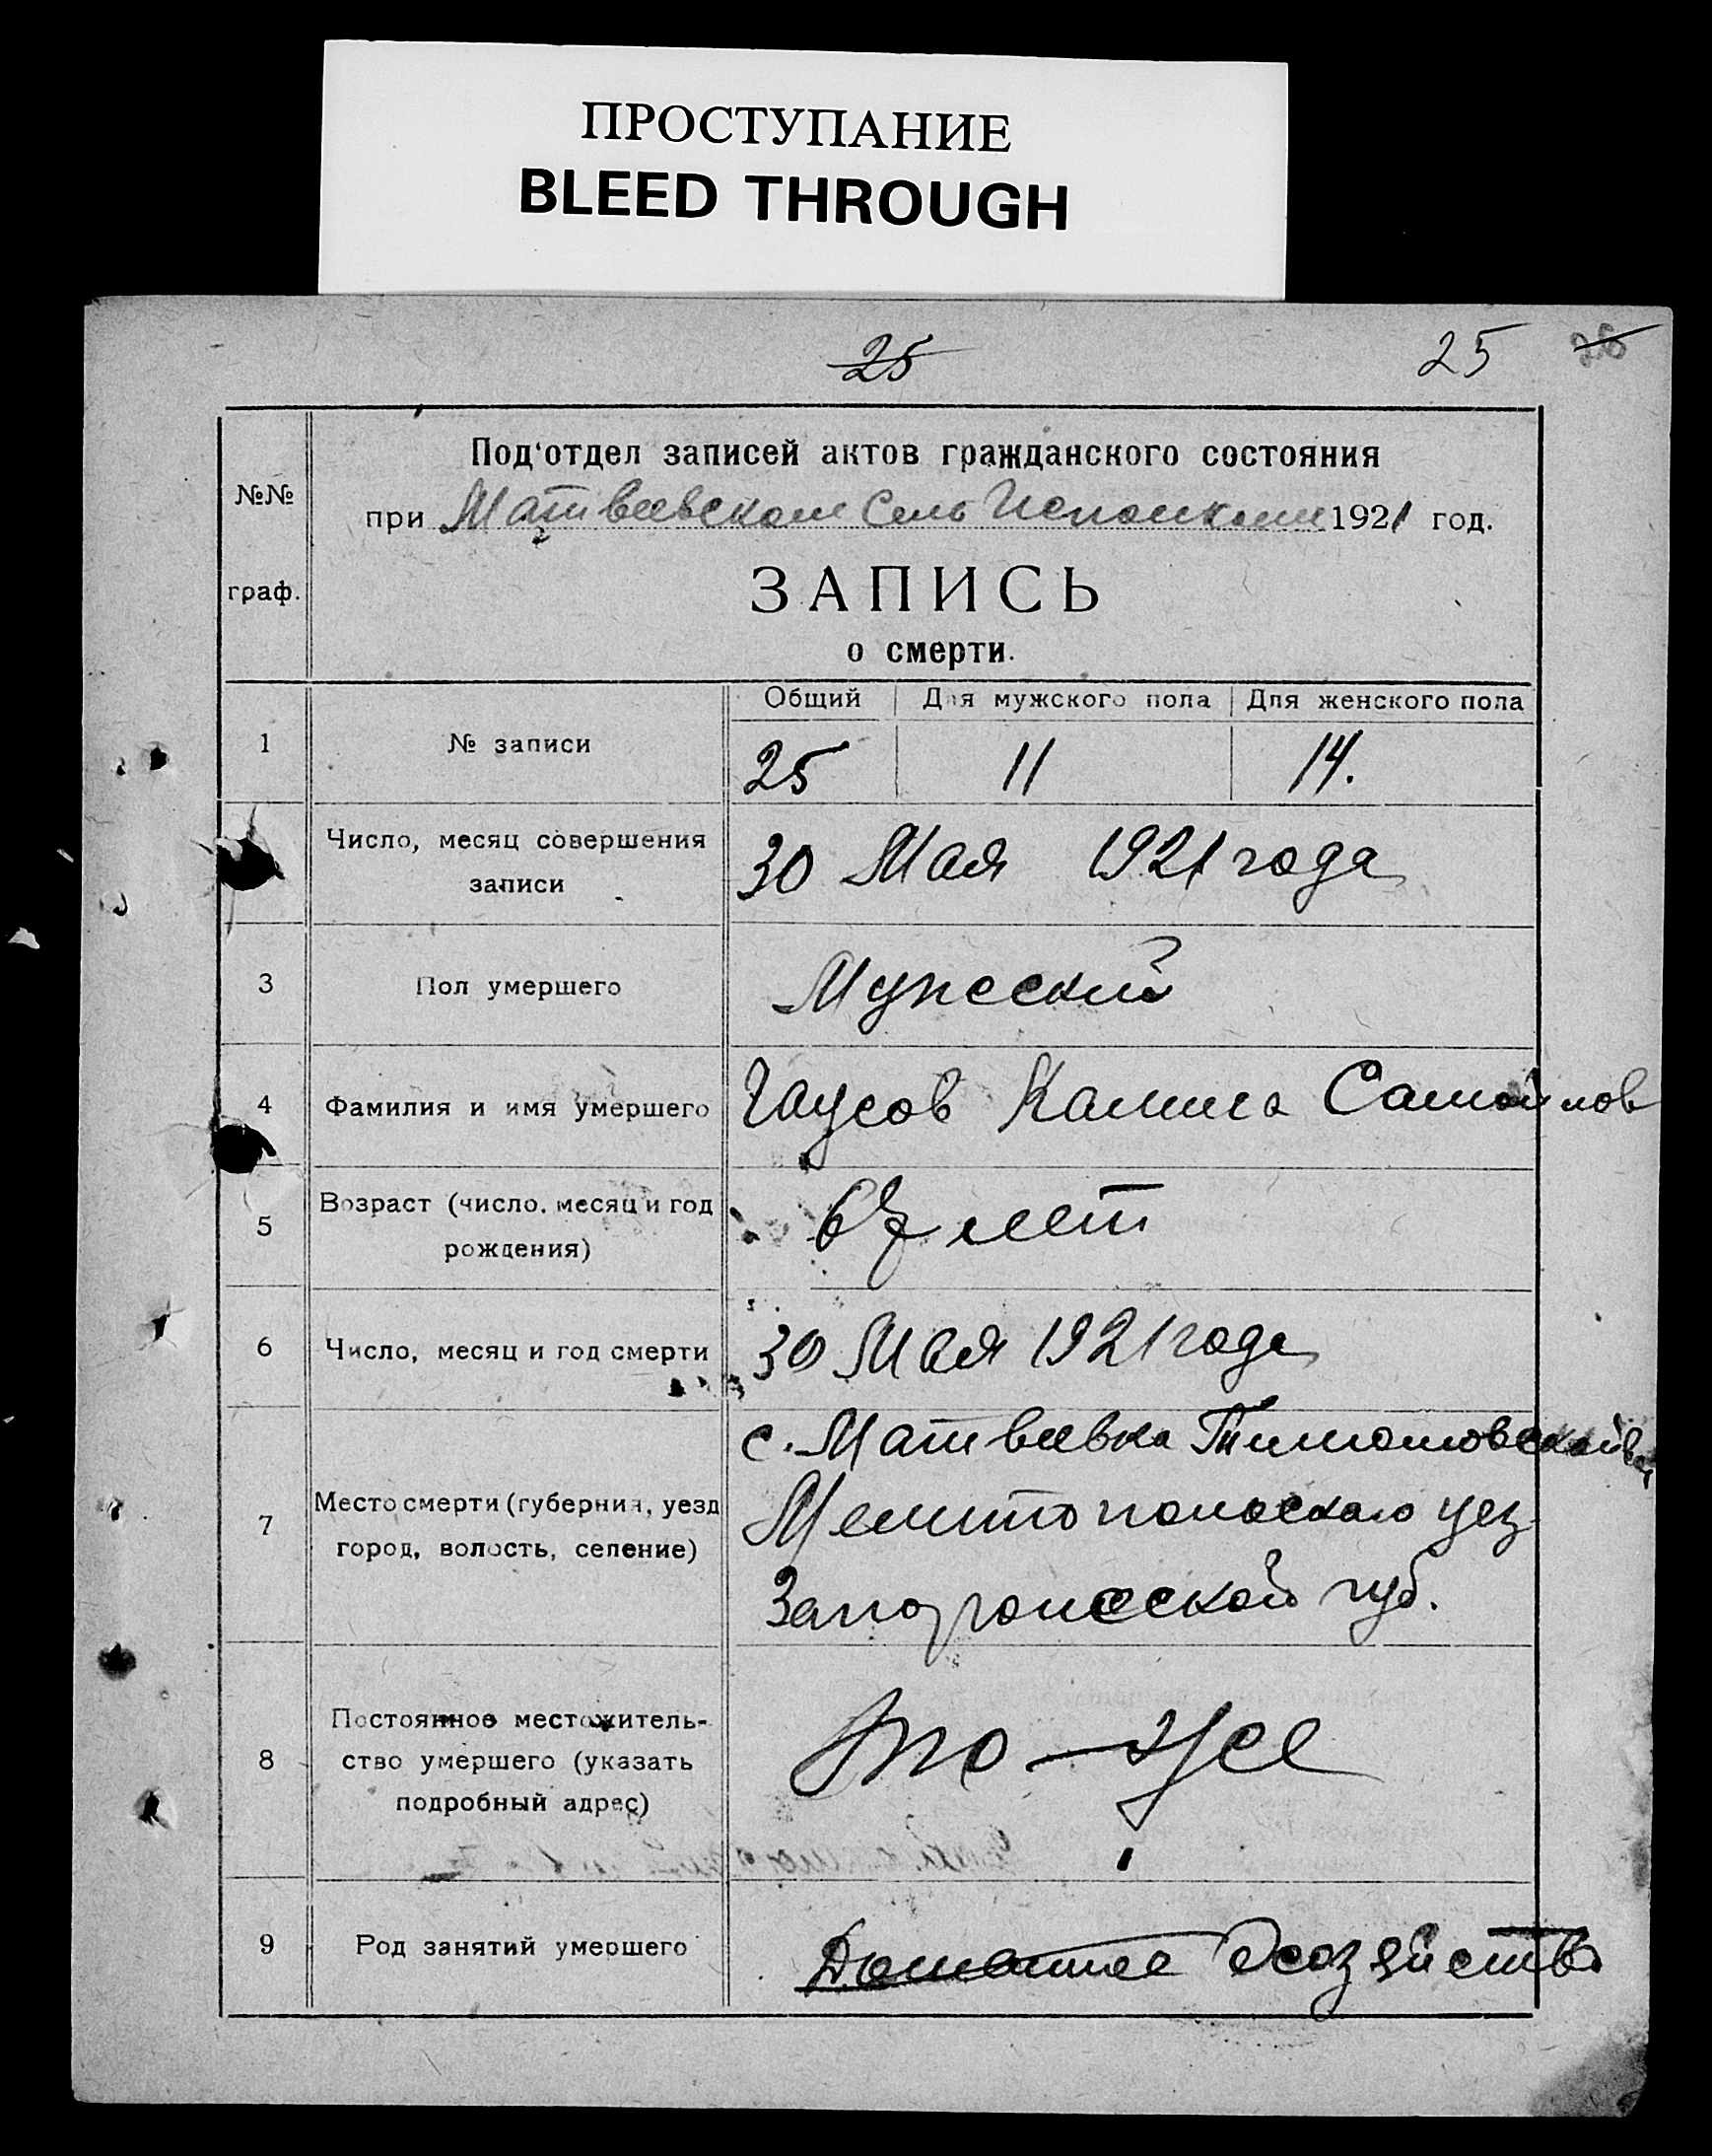 ПРОСТУПАНИЕ
BLEED THROUGH
25 25
№№
граф.
Под'отдел записей актов гражданского состояния
при Матвеевском Сель Исполкоме 1921 год.
ЗАПИСЬ
о смерти.
Общий Для мужского пола Для женского пола
1 № записи 25 11 14.
Число, месяц совершения
записи
30 Мая 1921 года
3 Пол умершего Мужеский
4 Фамилия и имя умершего Самойлов
5 Возраст (число, месяц и год
рождения)
67 лет
6 Число, месяц и год смерти 30 Мая 1921 года
7 Место смерти (губерния, уезд
город, волость, селение)
с. Матвеевка
Мелитопольского уез
Запорожсской губ.
8 Постоянное местожитель-
ство умершего (указать
подробный адрес)
то-же
9 Род занятий умершего Домашнее хозяйство